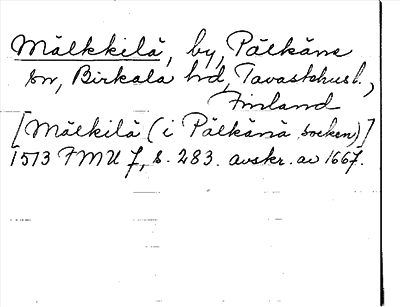 Mälkkilä, by, Pälkäne
sn, Birkala hd, Tavastehusl.,
Finland
[Mälkilä (i Pälkänä socken)]
1513 FMU 7, s. 283. avskr. av 1667.